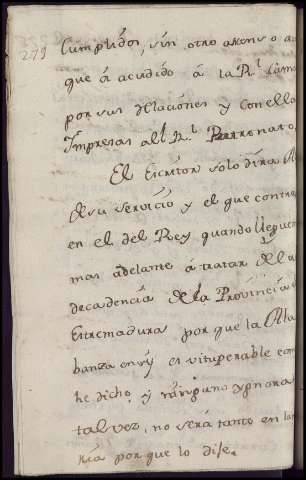 279
Cumplidos, sin otro
que á acudido á la R.l
por sus Relaciones y Con
Impresas al R.l Patronato
El Escritor solo dira
de su servicio, y el que
en el del Rey quando llegue
mas adelante á tratar de la
decadencia de la Provincia
Estremadura porque la Ala
banza en si es vituperable
he dicho, y ninguno ygnora
tal vez, no será tanto en la
ria porque lo dije.